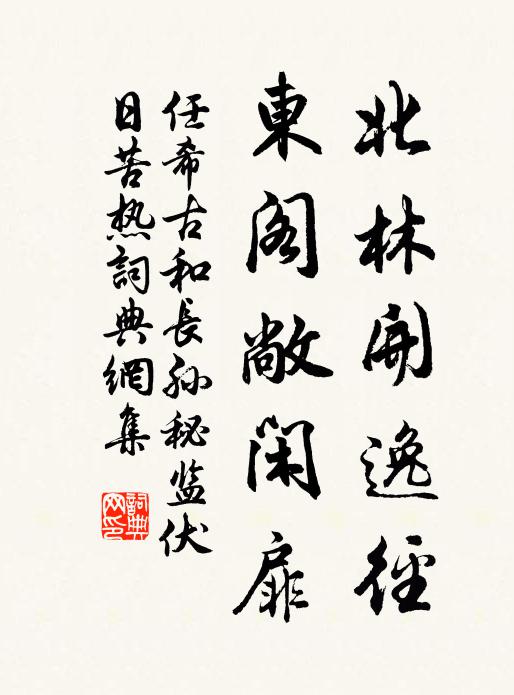 北林開逸徑
東閣敞閑扉
任希古和長孫秘监伏
日苦热詞典網集
詞典
网印